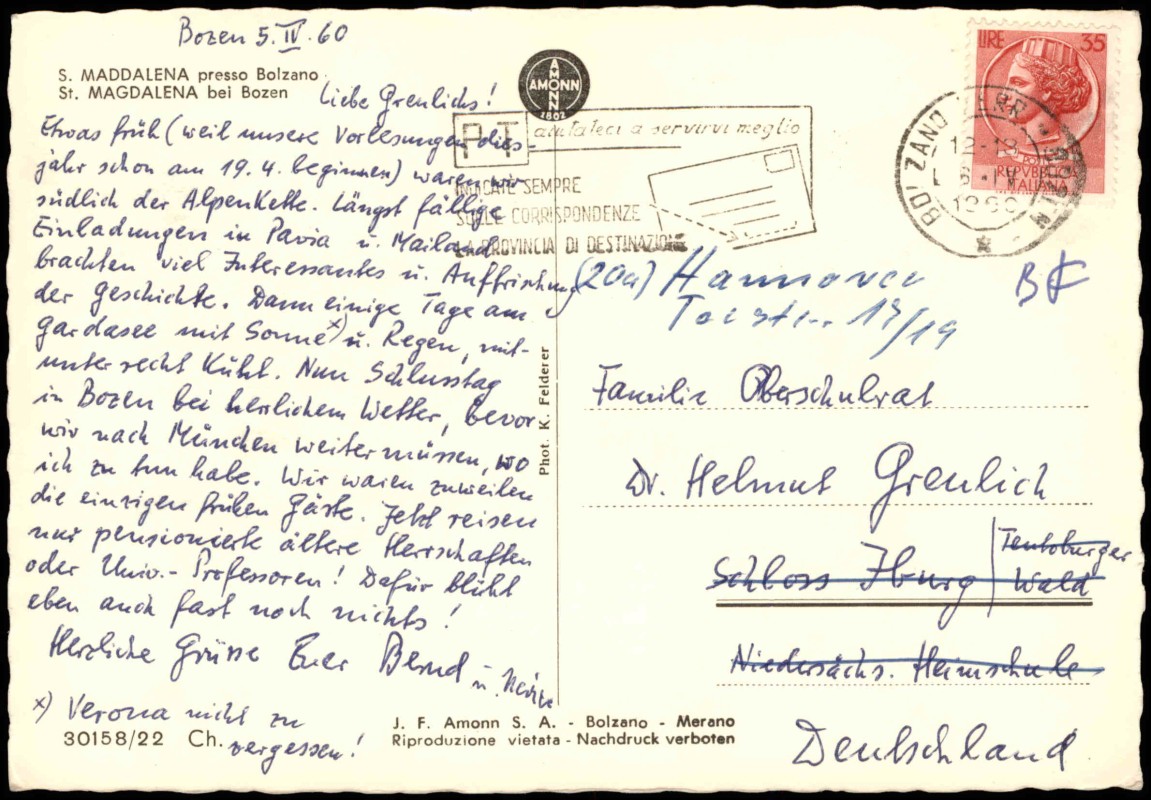 Bozen 5. IV. 60
S. MADDALENA presso Bolzano
St. MAGDALENA bei Bozen
Liebe Grenlichs!
Etwas früh (weil unsere Vorlesungen dies-
jahr schon am 19. 4. beginnen) waren wir
südlich der Alpenkette. Längst fällige
Einladungen in Pavia u. Mailand
brachten viel Interessantes u. Auffrischung
der Geschichte. Dann einige Tage am
Gardasee mit Sonne x) u. Regen, mit-
unter recht kühl. Nun Schlusstag
in Bozen bei herrlichem Wetter, bevor
wir nach München weitermüssen, wo
ich zu tun habe. Wir waren zuweilen
die einzigen frühen Gäste. Jetzt reisen
nur pensionierte ältere Herrschaften
oder Univ.-Professoren! Dafür blüht
eben auch fast noch nichts!
Herzliche Grüsse Euer Bernd
u.
x) Verona nicht zu
vergessen!
30158/22 Ch.
AMONN
AMONN
1802
P T
aiutateci a servirvi meglio
INDICATE SEMPRE
SULLE CORRISPONDENZE
LA PROVINCIA DI DESTINAZIONE
LIRE 35
REPVBBLICA
ITALIANA
BOLZANO FERR
12-13
1960
(20a) Hannover
17/19
Phot. K. Felderer
Familie Oberschulrat
Dr. Helmut Grenlich
Schloss Iburg
Teutoburger
Wald
Niedersächs. Heimschule
Deutschland
J. F. Amonn S. A. - Bolzano - Merano
Riproduzione vietata - Nachdruck verboten